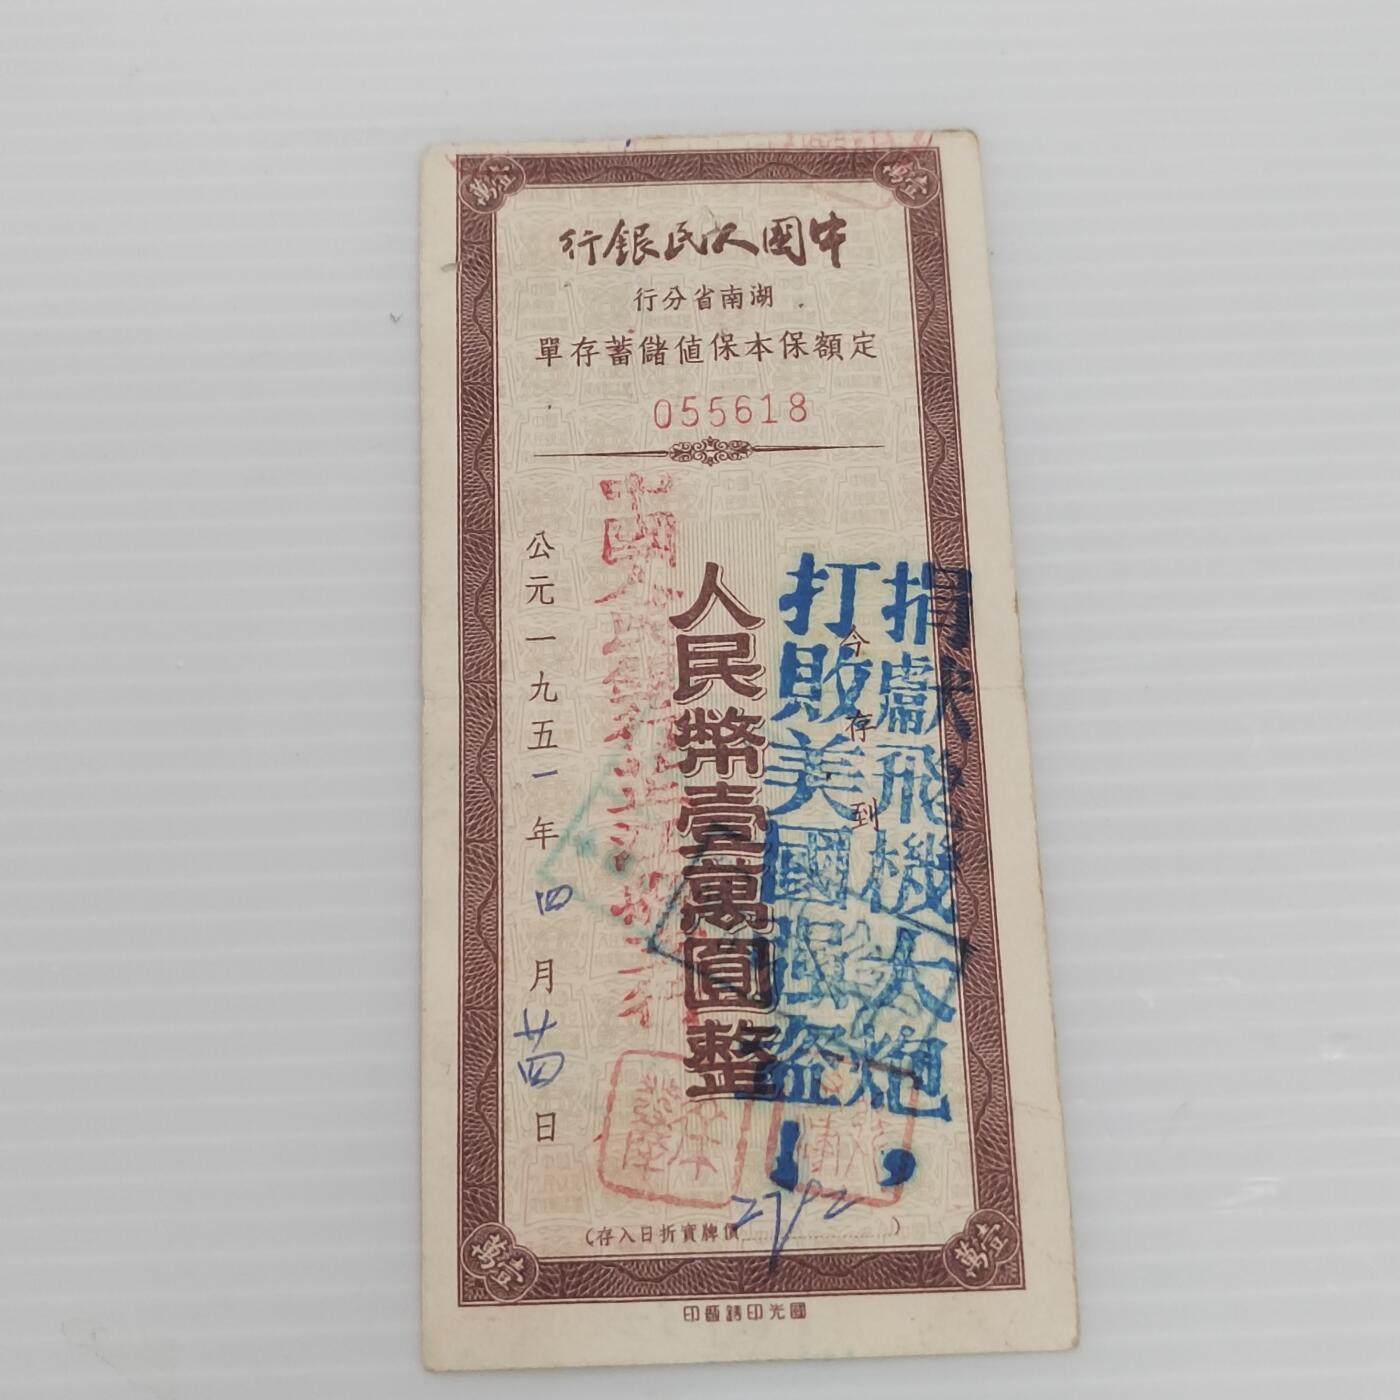 壹萬
壹萬
中國人民銀行
湖南省分行
定額保本保值儲蓄存單
055618
捐獻飛機大炮，
打敗美國强盜！
今存到
人民幣壹萬圓整
中國人民銀行
公元一九五一年四月廿四日
(存入日折實牌價 2792)
壹萬
壹萬